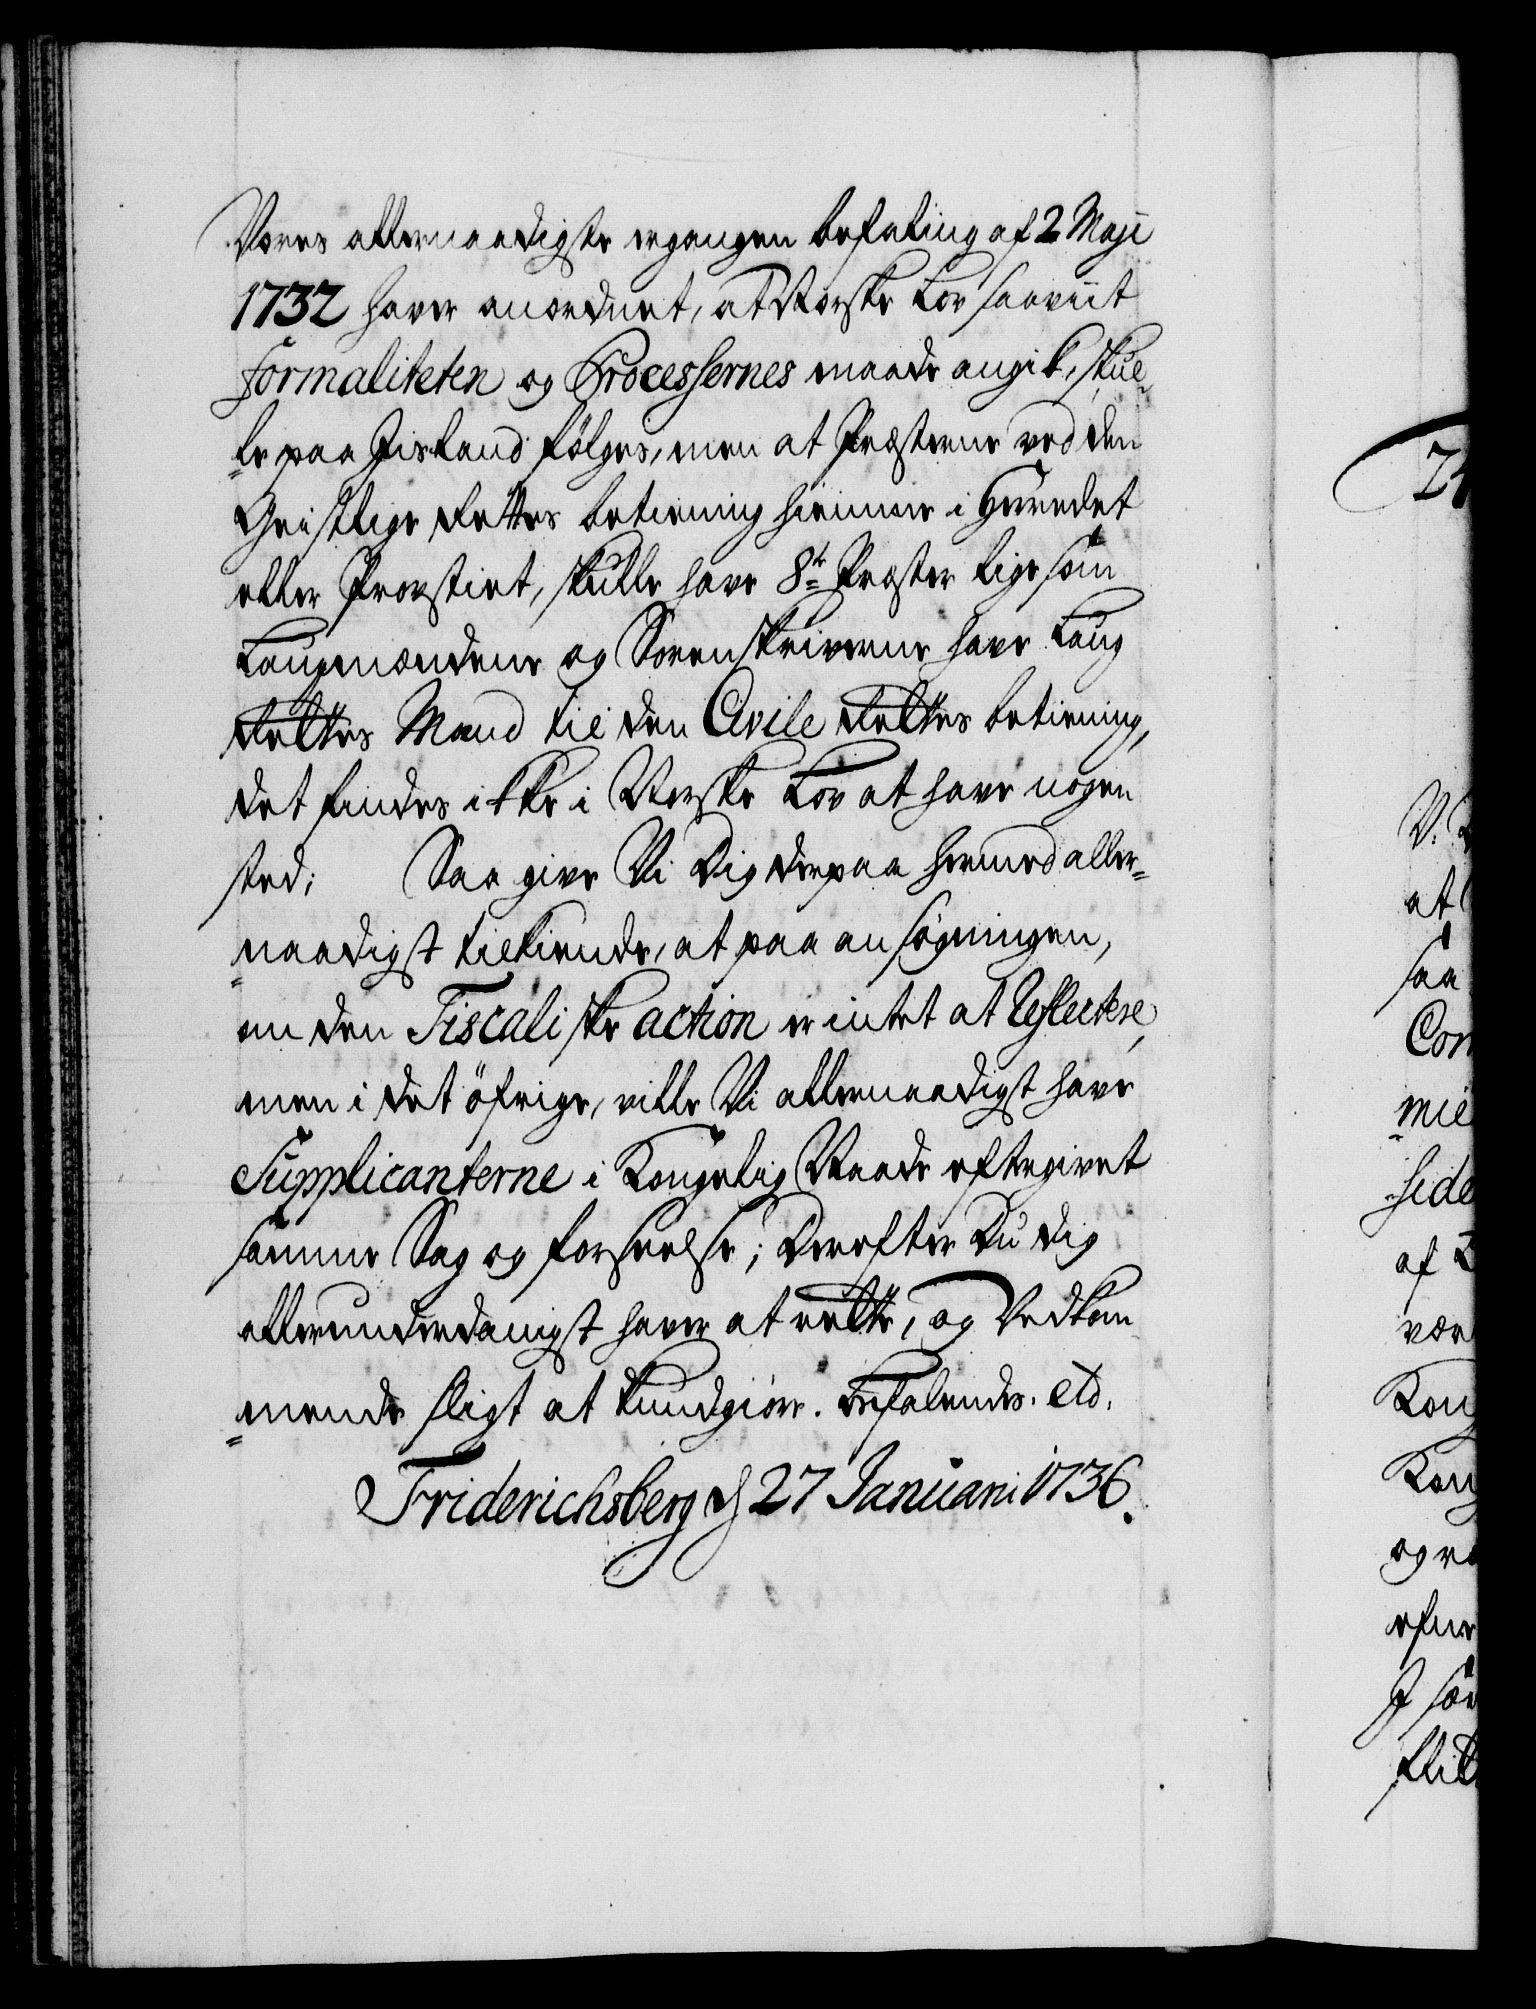 Vores allernaadigste ergangen befaling af 2 Maji
1732 haver anordnet, at Norske Lov saaviit
Formaliteten og Processernes maade angik, skul¬
le paa Island følges, men at Præsterne ved den
Geistlige Rettes betiening hiemme i Herredet
eller Provstiet, skulle have 8te Præster ligesom
Laugmændene og Sorenskriverne have Laug
Rettes Mænd til den Civile Rettes betiening,
det findes ikke i Norske Lov at have nogen
sted; Saa give Vi Dig derpaa hermed aller¬
naadigst tilkiende, at paa ansøgningen,
om den Fiscaliske action er intet at Reflectere,
men i det öfrige, ville Vi allernaadigst have
Supplicanterne i Kongelig Naade eftergivet
samme Sag og forseelse; Derefter Du dig
allerunderdanigst haver at rette, og Vedkom
mende sligt at kundgiöre. Befalendes. etc.
Friderichsberg d 27 Januarii 1736.
24
V.
at
saa
Com
mil
side
af
vær
Kong
Kong
og
efne
I